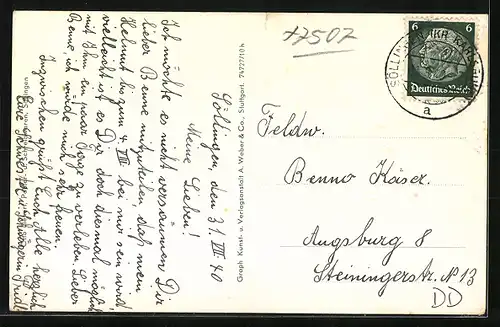 Söllingen, den 31.VII.40
Meine Lieben!
Ich möchte es nicht versäumen Dir
lieber Benno mitzuteilen, daß mein
Helmut bis zum 4.VIII bei mir sein wird
vielleicht ist es Dir doch diesmal möglich
mit Ihm ein paar Tage zu verleben. Lieber
Benno, ich würde mich sehr freuen.
Inzwischen grüßt Euch Alle herzlich
Eure Schwägerin
Graph. Kunst- u. Verlagsanstalt A. Weber & Co., Stuttgart.
+2507
SÖLLINGEN
a
6 6
Deutsches Reich
Feldw.
Benno Käser.
Augsburg 8
Steiningerstr. № 13
DD